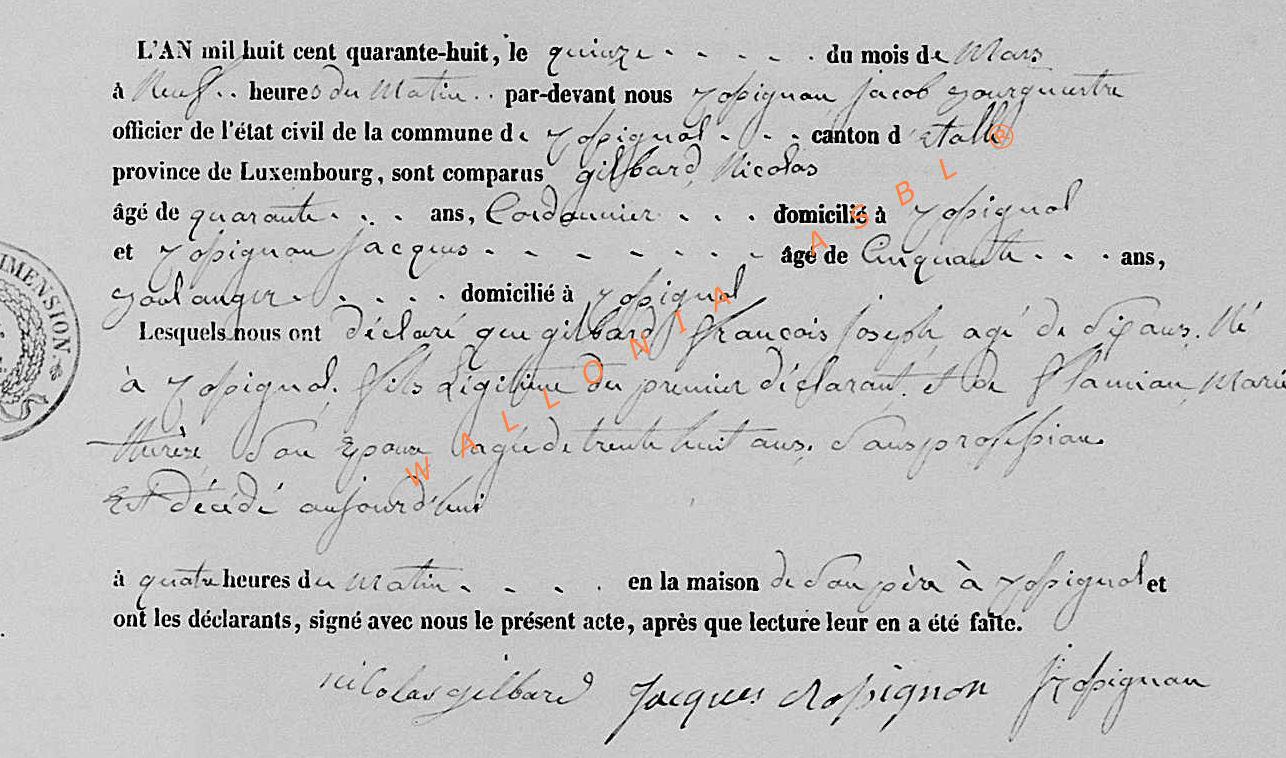 L'AN mil huit cent quarante-huit, le quinze . . . . . du mois de Mars
à Neuf .. heures du Matin .. par-devant nous Rossignon Jacob Bourguemtre
officier de l'état civil de la commune de Rossignol . . . canton d'étalle
province de Luxembourg, sont comparus gilbard, Nicolas
âgé de quarante . . . ans, Cordonnier . . . domicilié à Rossignol
et Rossignon Jacques . . . . . . . âgé de Cinquante . . . ans,
Boulanger . . . . . domicilié à Rossignol
Lesquels nous ont déclaré que gilbard, françois Joseph, agé de Six ans. Né
à Rossignol. fils Légitime du premier déclarant. et de flamion, Marie
thérèse, Son Epouse agée de trente huit ans. Sans profession.
Est décédé aujourd'hui
à quatre heures du Matin . . . . en la maison de Son père à Rossignol et
ont les déclarants, signé avec nous le présent acte, après que lecture leur en a été faite.
nicolas gilbard Jacques Rossignon J Rossignon
IMENSION.
WALLONIA ASBL ®